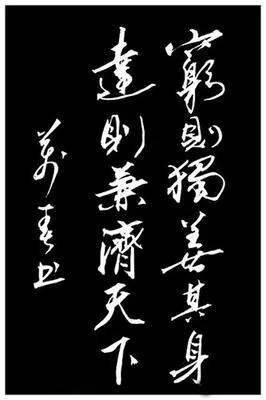 窮則獨善其身
達則兼濟天下
萬春書